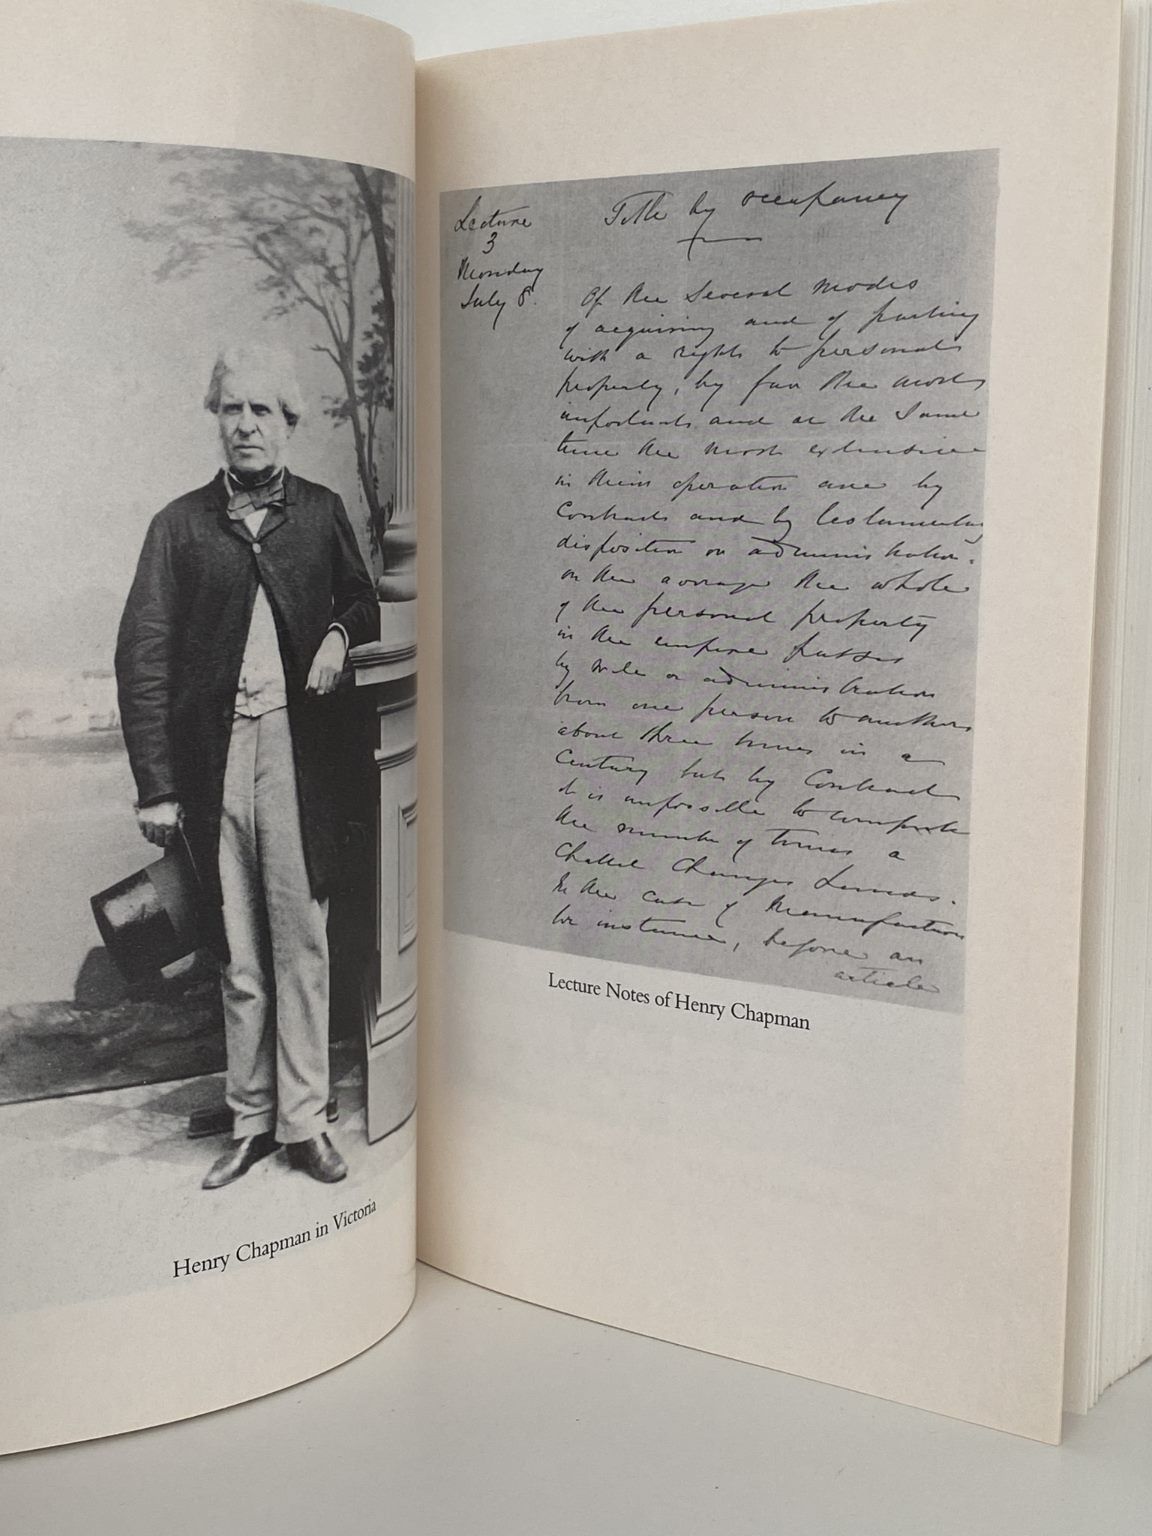 Henry Chapman in Victoria
Lecture
3
Monday
July 8.
Title by occupancy
Of the several modes
of acquiring and of parting
with a rights to personal
property, by far the most
important and at the same
time the most extensive
in their operation are by
Contracts and by testamentary
disposition or administration.
on the average the whole
of the personal property
in the empire passes
by will or administration
from one person to another
about three times in a
Century but by Contract
it is impossible to compute
the number of times a
Chattel Changes hands.
In the case of Manufactures
for instance, before an
article
Lecture Notes of Henry Chapman